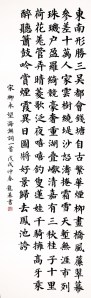 東南形勝三吳都會錢塘自古繁華煙柳畫橋風簾翠幕
參差十萬人家雲樹繞堤沙怒濤捲霜雪天塹無涯市列
珠璣戶盈羅綺競豪奢重湖疊巘清嘉有三秋桂子十里
荷花羌管弄晴菱歌泛夜嬉嬉釣叟蓮娃千騎擁高牙乘
醉聽簫鼓吟賞煙霞異日圖將好景歸去鳳池誇
宋柳永望海潮詞一首戊戌仲春書